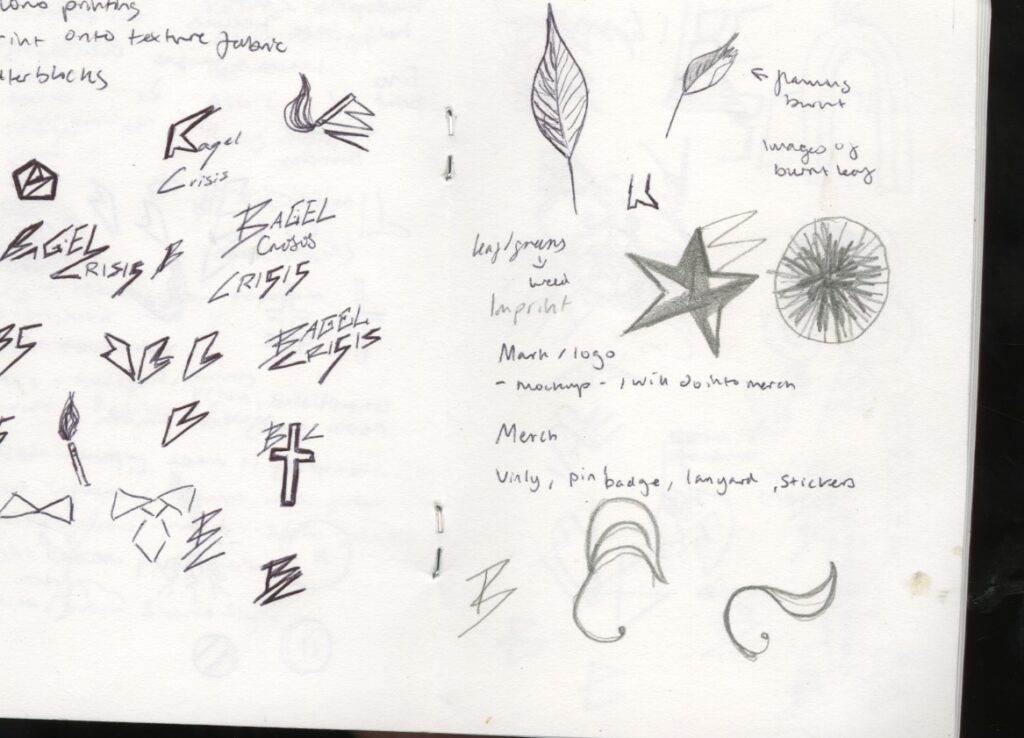 printing
onto texture fabric
blocks
Bagel
Crisis
BAGEL
CRISIS B
BAGEL
CRISIS
CRISIS
BAGEL
CRISIS
B B
B
B
flaming
burnt
Images of
burnt leaf
leaf/greens
weed
Imprint
Mark / logo
- mockup -
into merch
Merch
Vinly, pin badge, lanyard, stickers
B